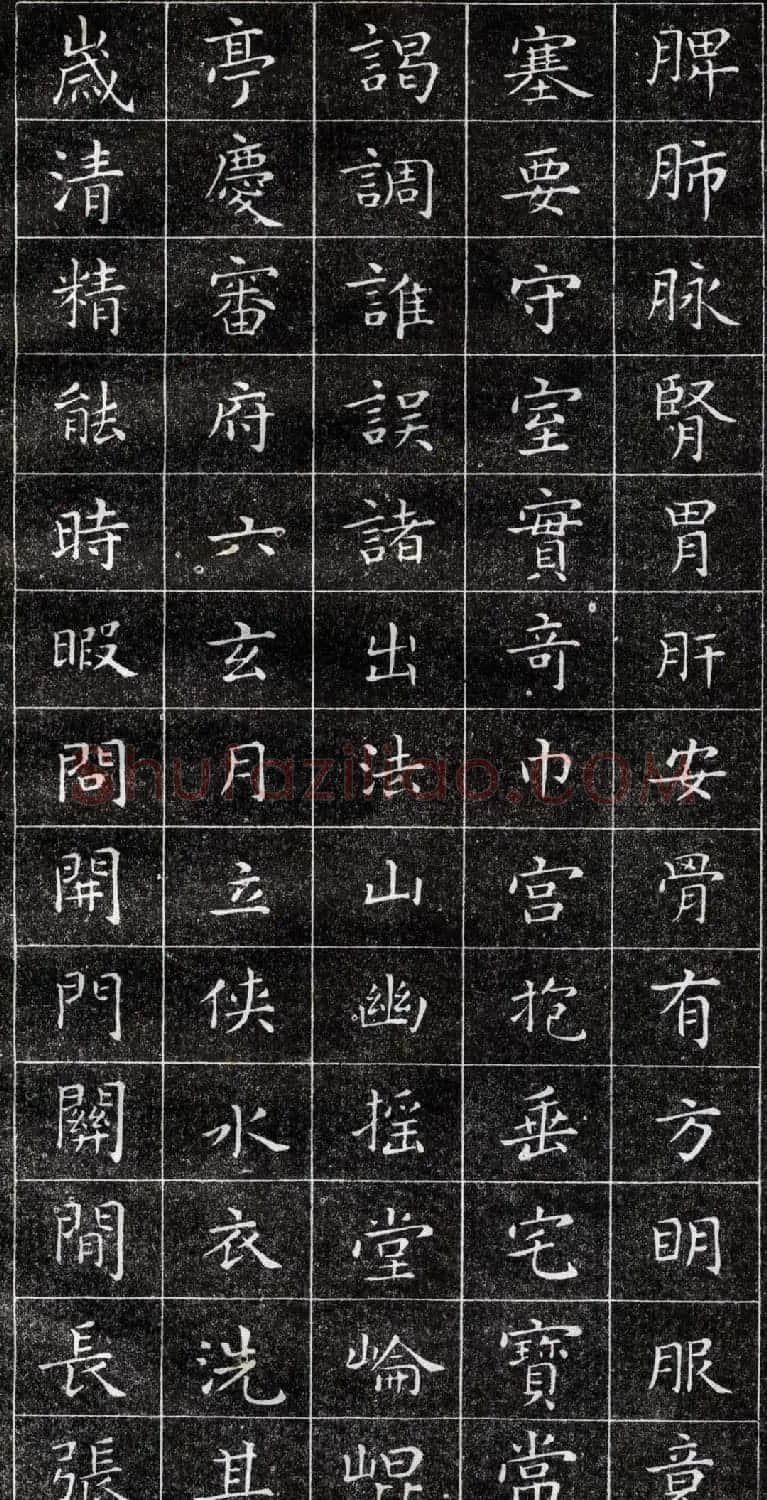 脾肺脉腎胃肝安骨有方明服章
塞要守室實奇巾宫抱垂宅寶常
謁調誰誤諸出法山幽摇堂崘崐
亭慶審府六玄月立俠水衣洗其
歳清精能時暇問開門關閒長張
Shufaziliao.COM